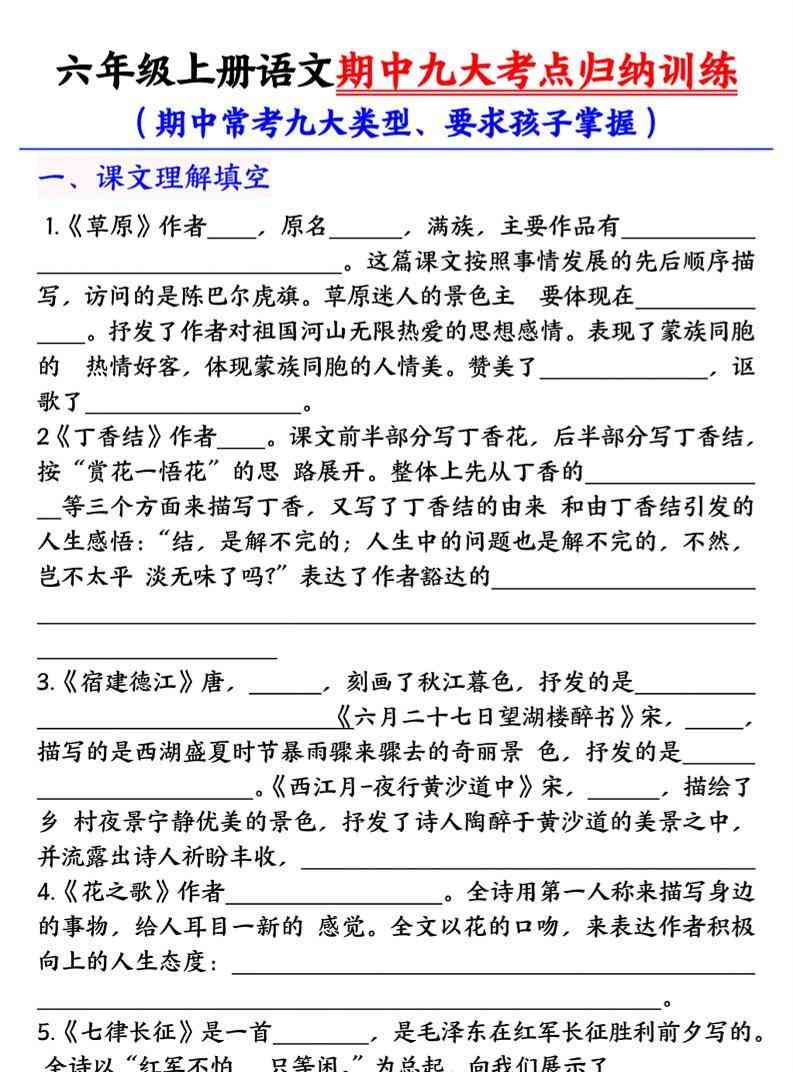 六年级上册语文期中九大考点归纳训练
（期中常考九大类型、要求孩子掌握）
一、课文理解填空
1.《草原》作者____，原名______，满族，主要作品有___________
_________________________。这篇课文按照事情发展的先后顺序描
写，访问的是陈巴尔虎旗。草原迷人的景色主 要体现在__________
____。抒发了作者对祖国河山无限热爱的思想感情。表现了蒙族同胞
的 热情好客，体现蒙族同胞的人情美。赞美了______________，讴
歌了__________________。
2《丁香结》作者____。课文前半部分写丁香花，后半部分写丁香结，
按“赏花一悟花”的思 路展开。整体上先从丁香的______________
__等三个方面来描写丁香，又写了丁香结的由来 和由丁香结引发的
人生感悟：“结，是解不完的；人生中的问题也是解不完的，不然，
岂不太平 淡无味了吗?”表达了作者豁达的______________________
____________________________________________________________
____________________
3.《宿建德江》唐，______，刻画了秋江暮色，抒发的是__________
__________________________《六月二十七日望湖楼醉书》宋，_____，
描写的是西湖盛夏时节暴雨骤来骤去的奇丽景 色，抒发的是______
__________________。《西江月-夜行黄沙道中》宋，______，描绘了
乡 村夜景宁静优美的景色，抒发了诗人陶醉于黄沙道的美景之中，
并流露出诗人祈盼丰收，______________________________________
4.《花之歌》作者__________________。全诗用第一人称来描写身边
的事物，给人耳目一新的 感觉。全文以花的口吻，来表达作者积极
向上的人生态度：____________________________________________
____________________________________________________。
5.《七律长征》是一首________，是毛泽东在红军长征胜利前夕写的。
全诗以“红军不怕__只等闲。”为总起，向我们展示了